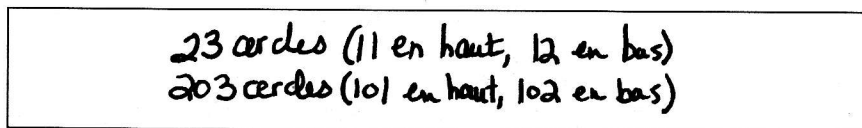 23 cercles (11 en haut, 12 en bas)
203 cercles (101 en haut, 102 en bas)